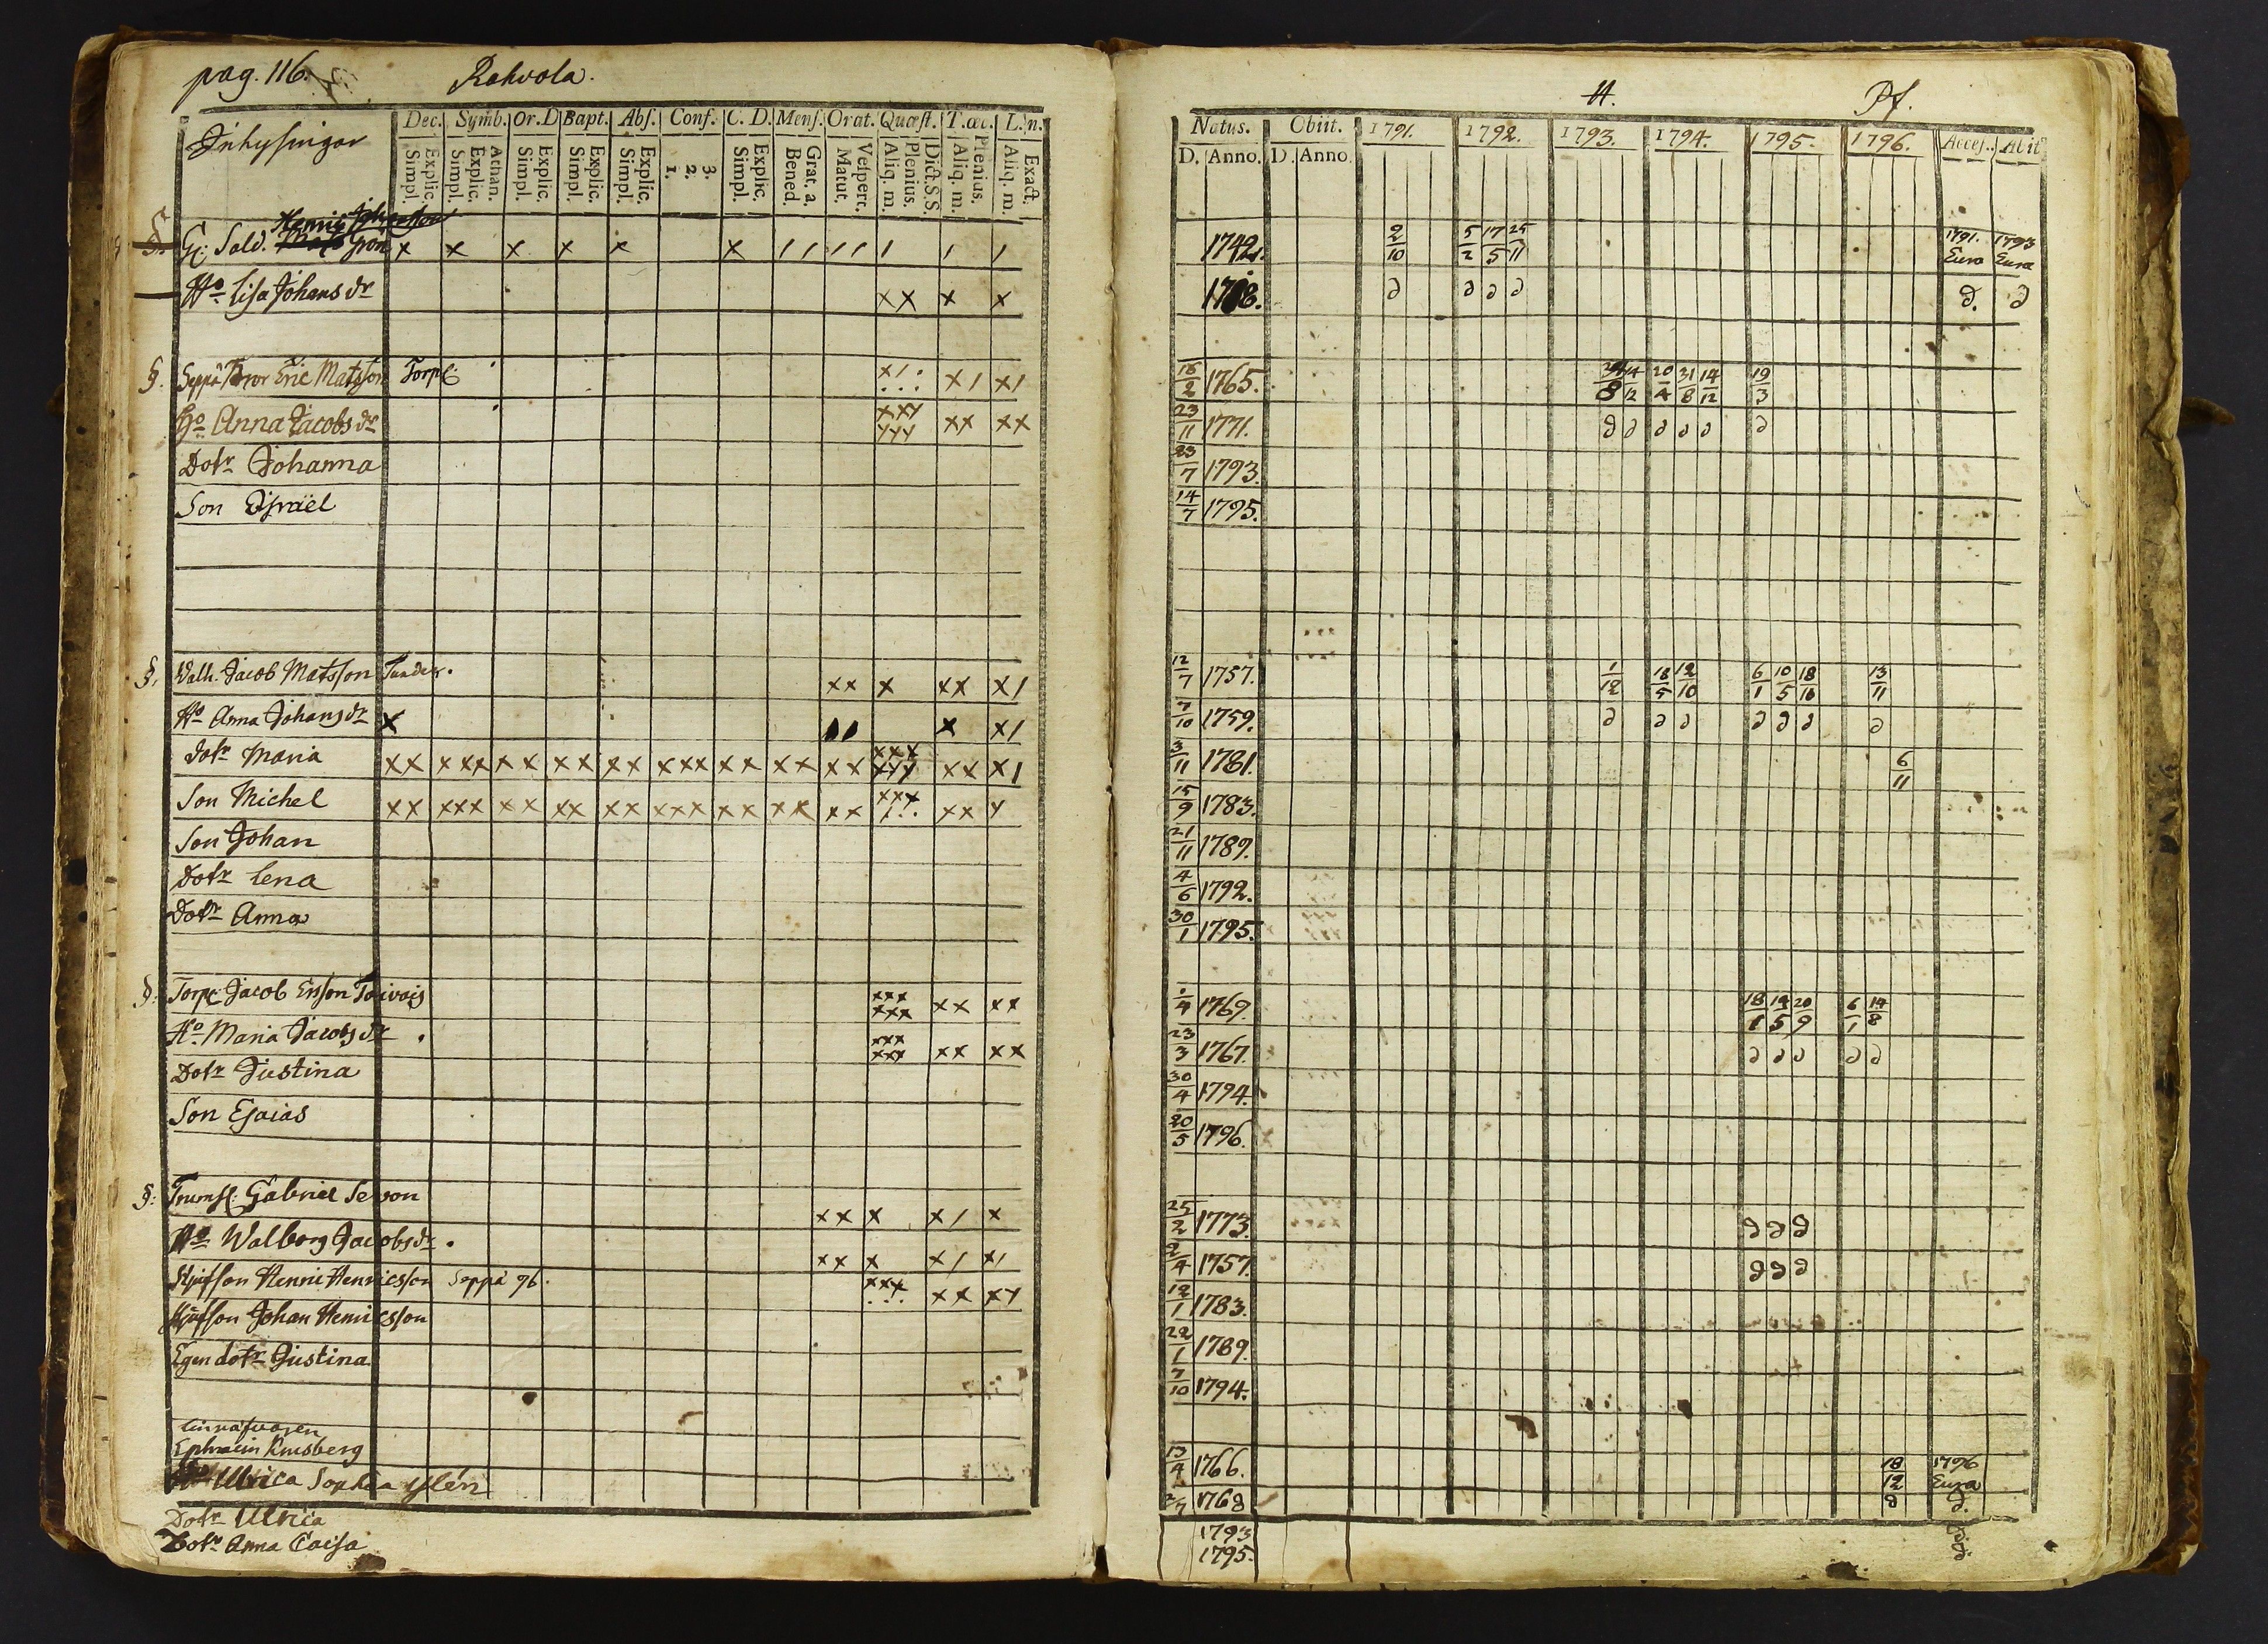 pag. 116. Rahvola.
Inhysingar
Dec. Symb. Or.D Bapt. Abs. Conf. C. D. Mens. Orat. Quæst. T.œc. L.n.
Explic. Simpl. Athan. Explic. Simpl. Explic. Simpl. Explic. Simpl. Explic. Simpl. 3. 2. 1. Explic. Simpl. Grat. a. Bened. Vespert. Matut. Dict.S.S. Plenius. Aliq. m. Plenius. Aliq. m. Exact. Aliq. m.
Henric Johansson
§. Gl: Sold. Mats Grön x x x x x x / / / / / / /
Ho Lisa Johans dr x x x x
§. Seppä Bror Eric Matsson Torp: x / x / x /
Ho Anna Jacobs dr xxx yyy xx xx
Dotr Johanna
Son Israël
§. Walh. Jacob Matsson xx x xx x/
Ho Anna Johans dr x x x/
dotr Maria xx xxx xx xx xx xxx xx xx xx xxx xxx xx x/
Son Michel xx xxx xx xx xx xxx xx xx xx xxx xx y
Son Johan
Dotr Lena
Dotr Anna
§. Torp: Jacob Ersson xxx xxx xx xx
Ho Maria Jacobs dr xxx xxx xx xx
Dotr Justina
Son Esaias
§: Gabriel Sevon xx x x/ x
Ho Walborg Jacobs dr xx x x/ x/
Stjufson Henric Henricsson Seppä 96. xxx xx xy
Stjufson Johan Henricsson
Egen dotr Justina
Ephraim
Ho Ulrica Sophia Ylén
Dotr Ulrica
Dotr Anna Caisa
H. Pf.
Natus. Obiit. 1791. 1792. 1793. 1794. 1795. 1796. Acces. Abit
D. Anno. D. Anno.
1742. 2/10 5/2 17/5 25/11 1791. Eura 1793 Eura
∂ ∂ ∂ ∂ ∂. ∂
16/2 1765. 14/12 20/4 31/8 14/12 19/3
23/11 1771. ∂ ∂ ∂ ∂ ∂ ∂
23/7 1793.
14/7 1795.
12/7 1757. 1/12 18/5 12/10 6/1 10/5 18/10 13/11
7/10 1759. ∂ ∂ ∂ ∂ ∂ ∂ ∂
3/11 1781. 6/11
15/9 1783.
21/11 1789.
4/6 1792.
30/1 1795.
1769. 18/1 14/5 20/9 6/1 14/8
23/3 1767. ∂ ∂ ∂ ∂ ∂
30/4 1794.
20/5 1796.
25/2 1773. ∂ ∂ ∂
2/4 1757. ∂ ∂ ∂
12/1 1783.
22/1 1789.
7/10 1794.
13/4 1766. 18/12 1796 Eura
1768 ∂ ∂.
1793
1795.